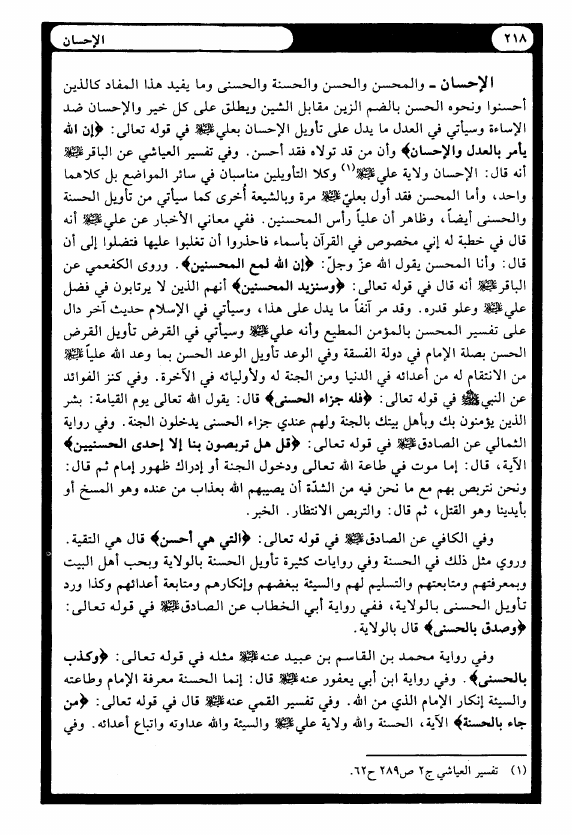 ٢١٨
الإحسان
الإحسان ـ والمحسن والحسن والحسنة والحسنى وما يفيد هذا المفاد كالذين
أحسنوا ونحوه الحسن بالضم الزين مقابل الشين ويطلق على كل خير والإحسان ضد
الإساءة وسيأتي في العدل ما يدل على تأويل الإحسان بعلي عليه السلام في قوله تعالى: ﴿إن الله
يأمر بالعدل والإحسان﴾ وأن من قد تولاه فقد أحسن. وفي تفسير العياشي عن الباقر عليه السلام
أنه قال: الإحسان ولاية علي عليه السلام(١) وكلا التأويلين مناسبان في سائر المواضع بل كلاهما
واحد، وأما المحسن فقد أول بعليّ عليه السلام مرة وبالشيعة أُخرى كما سيأتي من تأويل الحسنة
والحسنى أيضاً، وظاهر أن علياً رأس المحسنين. ففي معاني الأخبار عن علي عليه السلام أنه
قال في خطبة له إني مخصوص في القرآن بأسماء فاحذروا أن تغلبوا عليها فتضلوا إلى أن
قال: وأنا المحسن يقول الله عزّ وجلّ: ﴿إن الله لمع المحسنين﴾. وروى الكفعمي عن
الباقر عليه السلام أنه قال في قوله تعالى: ﴿وسنزيد المحسنين﴾ أنهم الذين لا يرتابون في فضل
علي عليه السلام وعلو قدره. وقد مر آنفاً ما يدل على هذا، وسيأتي في الإسلام حديث آخر دال
على تفسير المحسن بالمؤمن المطيع وأنه علي عليه السلام وسيأتي في القرض تأويل القرض
الحسن بصلة الإمام في دولة الفسقة وفي الوعد تأويل الوعد الحسن بما وعد الله علياً عليه السلام
من الانتقام له من أعدائه في الدنيا ومن الجنة له ولأوليائه في الآخرة. وفي كنز الفوائد
عن النبي ﷺ في قوله تعالى: ﴿فله جزاء الحسنى﴾ قال: يقول الله تعالى يوم القيامة: بشر
الذين يؤمنون بك وبأهل بيتك بالجنة ولهم عندي جزاء الحسنى يدخلون الجنة. وفي رواية
الثمالي عن الصادق عليه السلام في قوله تعالى: ﴿قل هل تربصون بنا إلا إحدى الحسنيين﴾
الآية، قال: إما موت في طاعة الله تعالى ودخول الجنة أو إدراك ظهور إمام ثم قال:
ونحن نتربص بهم مع ما نحن فيه من الشدّة أن يصيبهم الله بعذاب من عنده وهو المسخ أو
بأيدينا وهو القتل، ثم قال: والتربص الانتظار. الخبر.
وفي الكافي عن الصادق عليه السلام في قوله تعالى: ﴿التي هي أحسن﴾ قال هي التقية.
وروي مثل ذلك في الحسنة وفي روايات كثيرة تأويل الحسنة بالولاية وبحب أهل البيت
وبمعرفتهم ومتابعتهم والتسليم لهم والسيئة ببغضهم وإنكارهم ومتابعة أعدائهم وكذا ورد
تأويل الحسنى بالولاية، ففي رواية أبي الخطاب عن الصادق عليه السلام في قوله تعالى:
﴿وصدق بالحسنى﴾ قال بالولاية.
وفي رواية محمد بن القاسم بن عبيد عنه عليه السلام مثله في قوله تعالى: ﴿وكذب
بالحسنى﴾. وفي رواية ابن أبي يعفور عنه عليه السلام قال: إنما الحسنة معرفة الإمام وطاعته
والسيئة إنكار الإمام الذي من الله. وفي تفسير القمي عنه عليه السلام قال في قوله تعالى: ﴿من
جاء بالحسنة﴾ الآية، الحسنة والله ولاية علي عليه السلام والسيئة والله عداوته واتباع أعدائه. وفي
(١) تفسير العياشي ج٢ ص٢٨٩ ح٦٢.